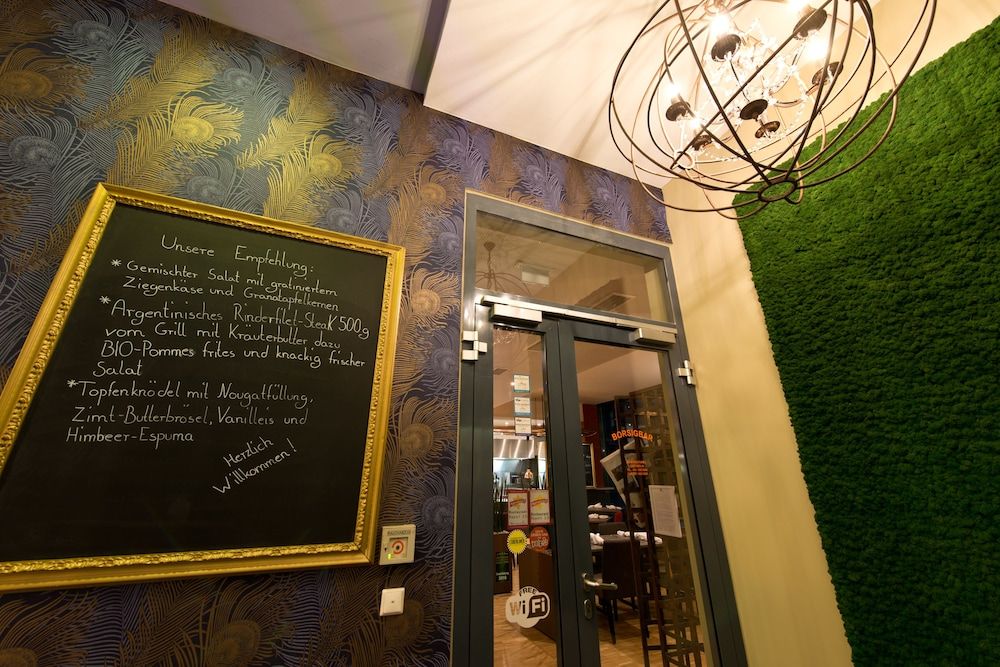 Unsere Empfehlung:
* Gemischter Salat mit gratiniertem
Ziegenkäse und Granatapfelkernen
* Argentinisches Rinderfilet-Steak 500g
vom Grill mit Kräuterbutter dazu
BIO-Pommes frites und knackig frischer
Salat
* Topfenknödel mit Nougatfüllung,
Zimt-Butterbrösel, Vanilleis und
Himbeer-Espuma
Herzlich
Willkommen!
BORSIGBAR
FREE
WiFi